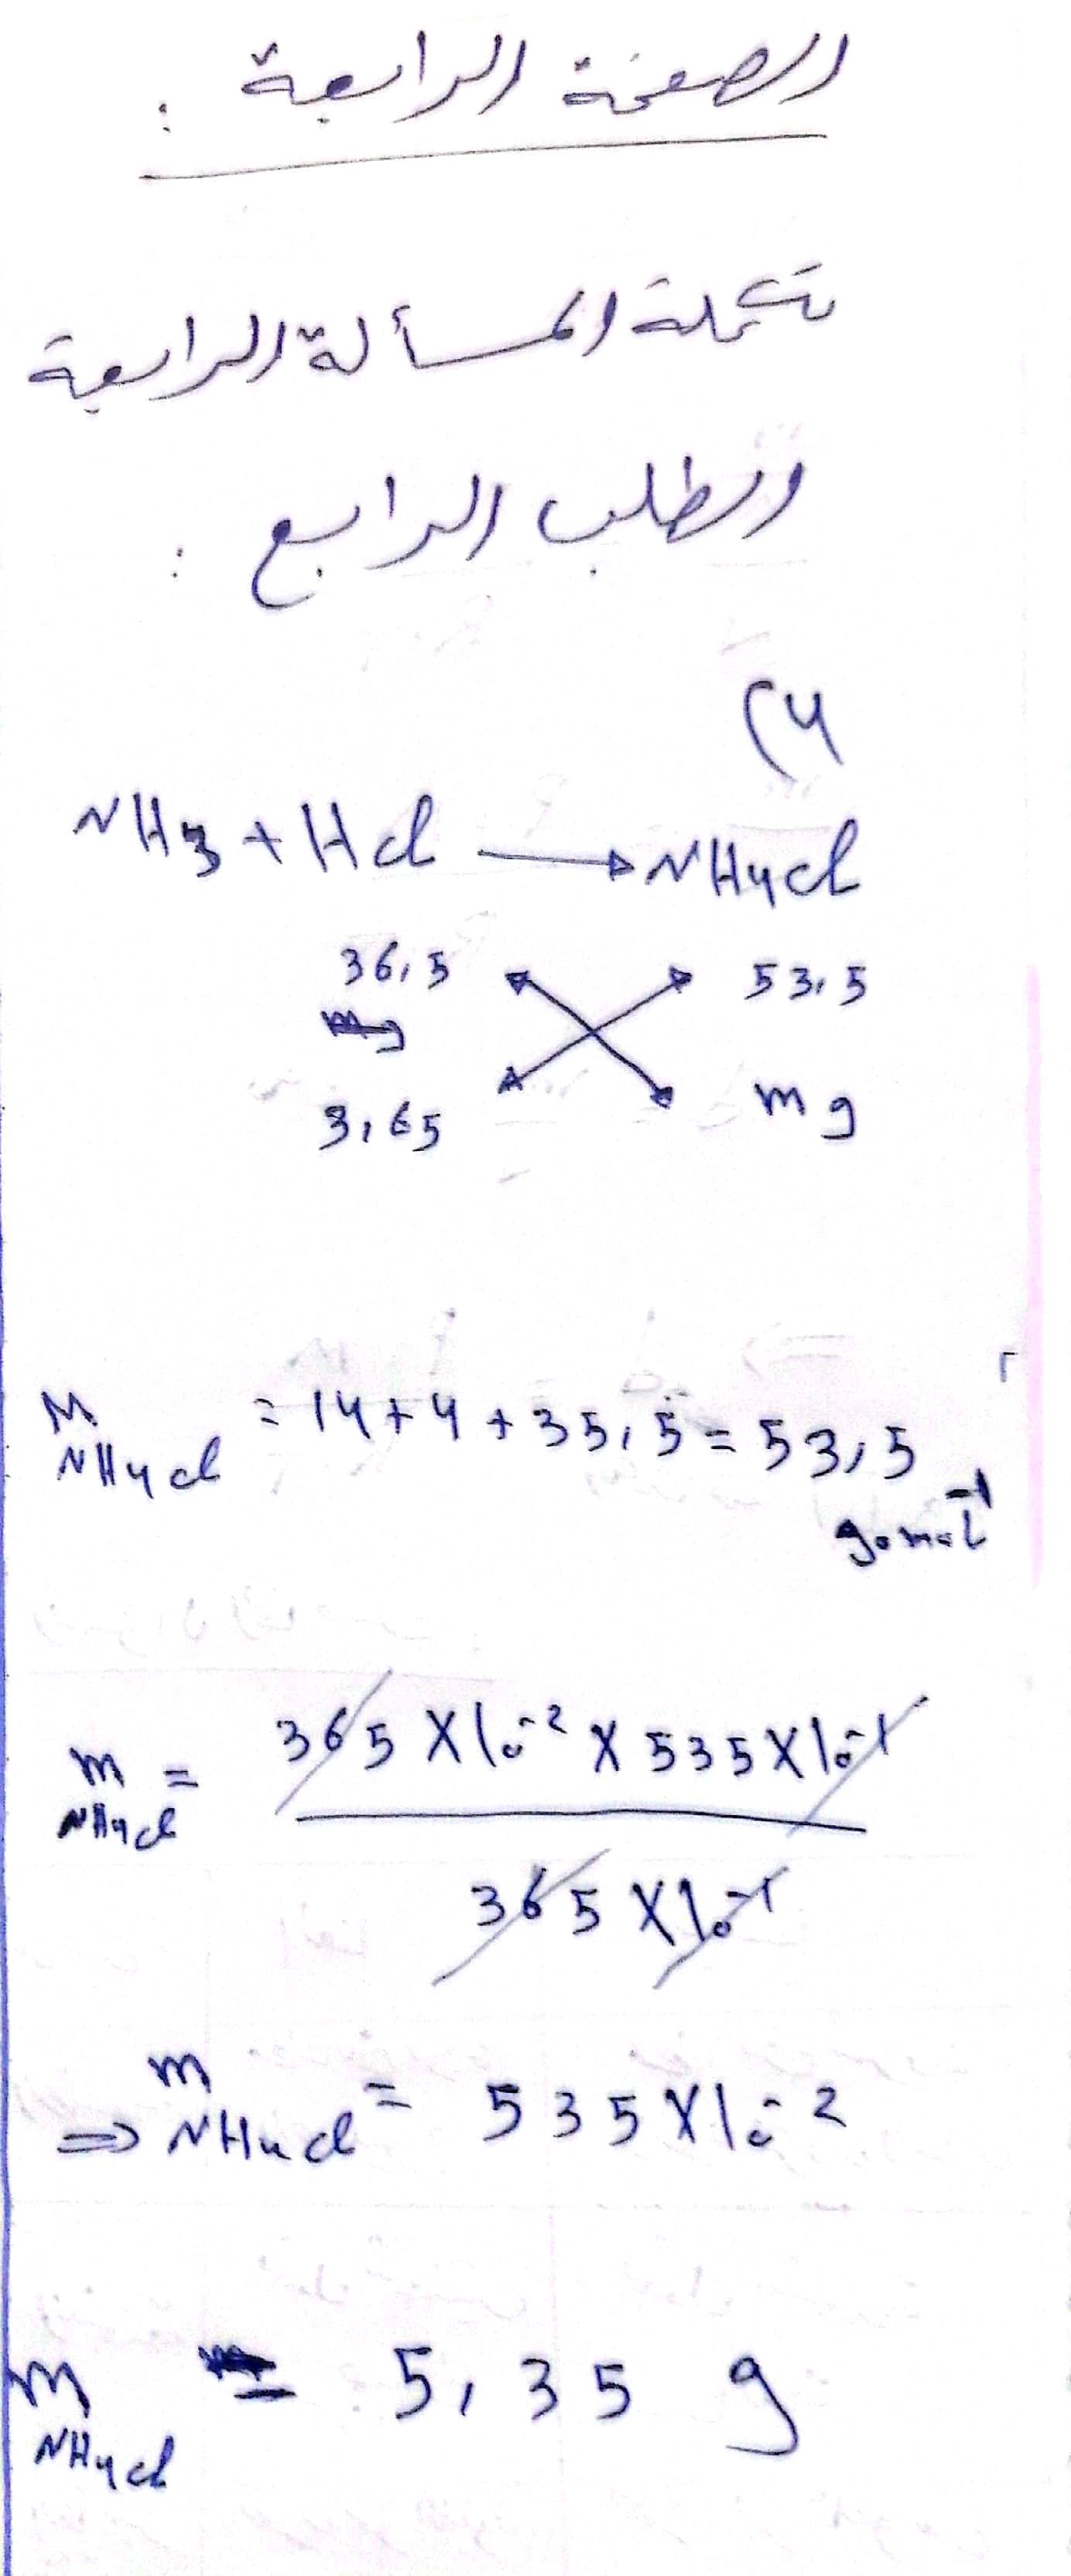 الصفحة الرابعة :
تكملة المسألة الرابعة
الطلب الرابع :
(4
NH3 + HCl → NH4Cl
36,5 53,5
3,65 m g
M NH4Cl = 14 + 4 + 35,5 = 53,5 g.mol⁻¹
m NH4Cl = 365 X 10⁻² X 535 X 10⁻¹
365 X 10⁻¹
⇒ m NH4Cl = 535 X 10⁻²
m NH4Cl = 5,35 g